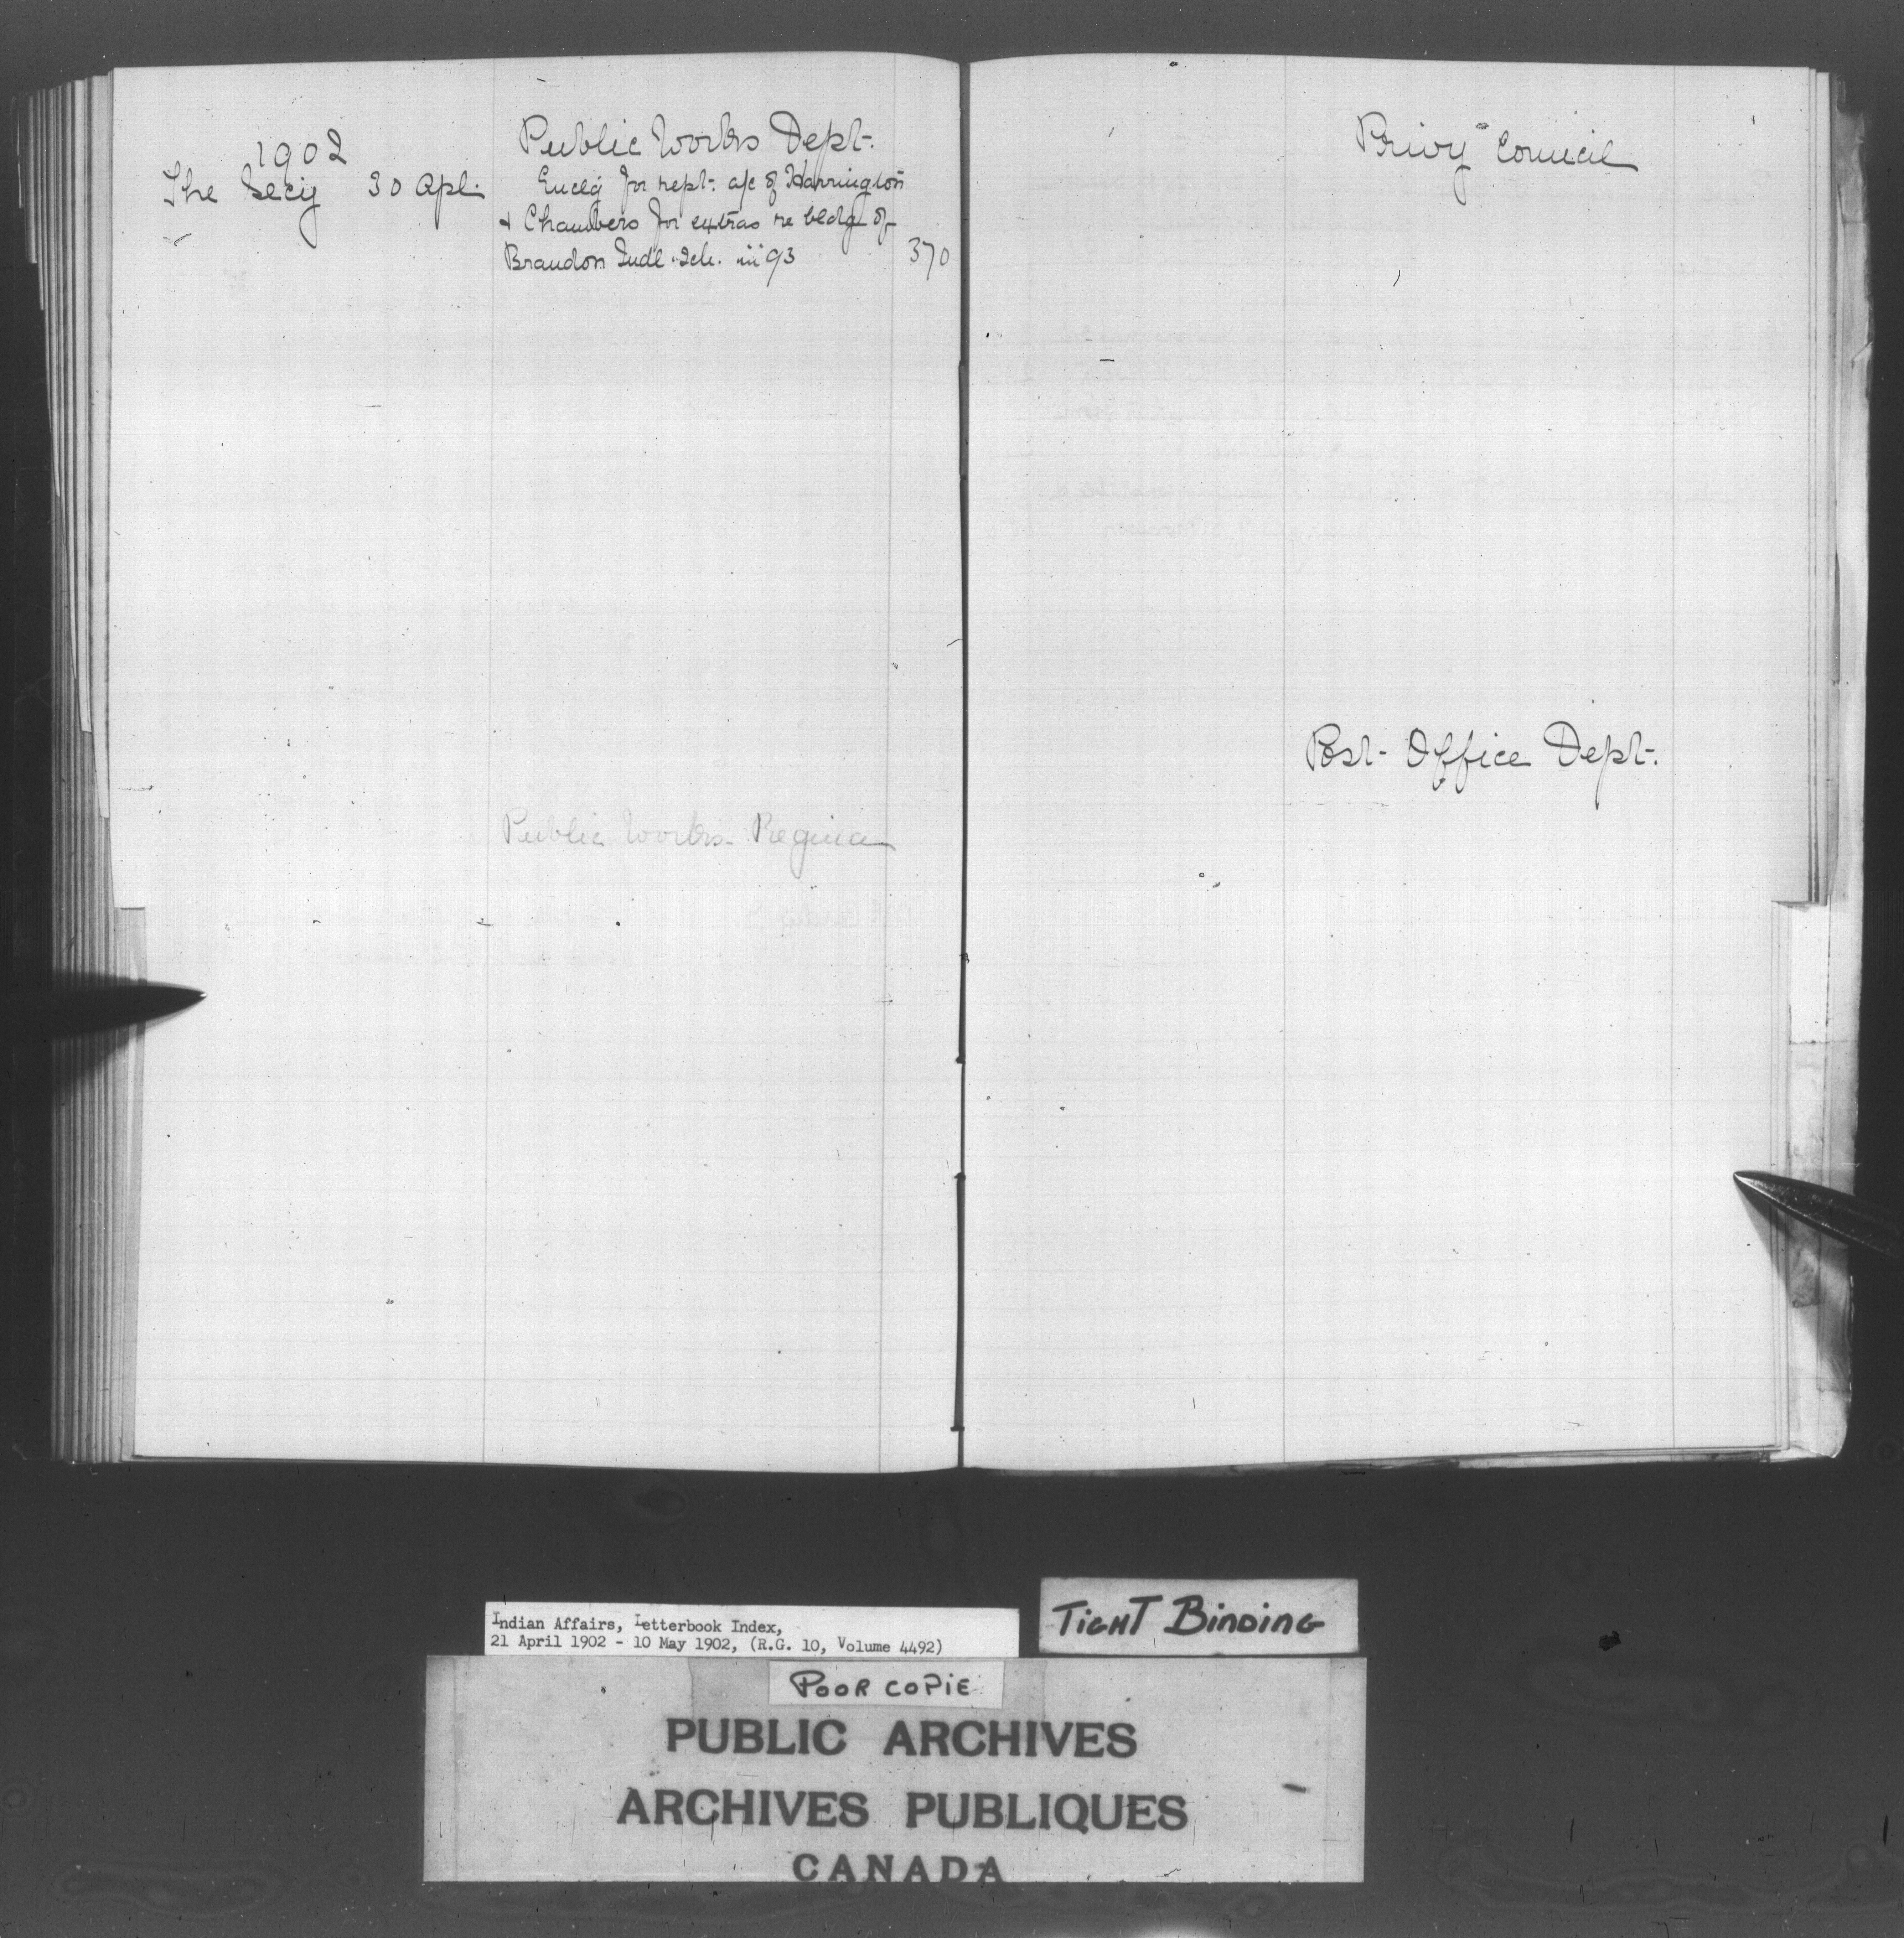 1902
Public Works Dept.
The Secy 30 Apl. Enclg for rept: a/c of Harrington
& Chambers for extras re bldg of
Brandon Indl. Sch. in 93 370
Public Works - Regina
Privy Council
Post Office Dept.
Indian Affairs, Letterbook Index,
21 April 1902 - 10 May 1902, (R.G. 10, Volume 4492)
TIGHT BINDING
POOR COPIE
PUBLIC ARCHIVES
ARCHIVES PUBLIQUES
CANADA